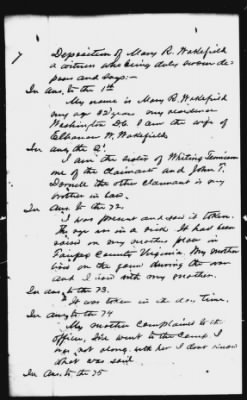 Deposition of Mary R. Wakefield
a witness who being duly sworn de-
poses and says:-
In Ans. to the 1st
My name is Mary R. Wakefield
my age 32 years my residence
Washington DC I am the wife of
W. Wakefield
In ans to the 2d
I am the sister of Whiting
one of the Claimants and John T.
the other Claimant is my
brother in law.
In Ans. to the 72.
I was present and saw it taken.
The rye was in a rick It had been
raised on my mothers place in
Fairfax County Virginia. My mother
lived on the farm during the war
and I lived with my mother.
In ans to the 73.
It was taken in the day time.
In ans to the 74
My mother Complained to the
officer. She went to the Camp I
was not along with her I dont know
what was said
In Ans. to the 75